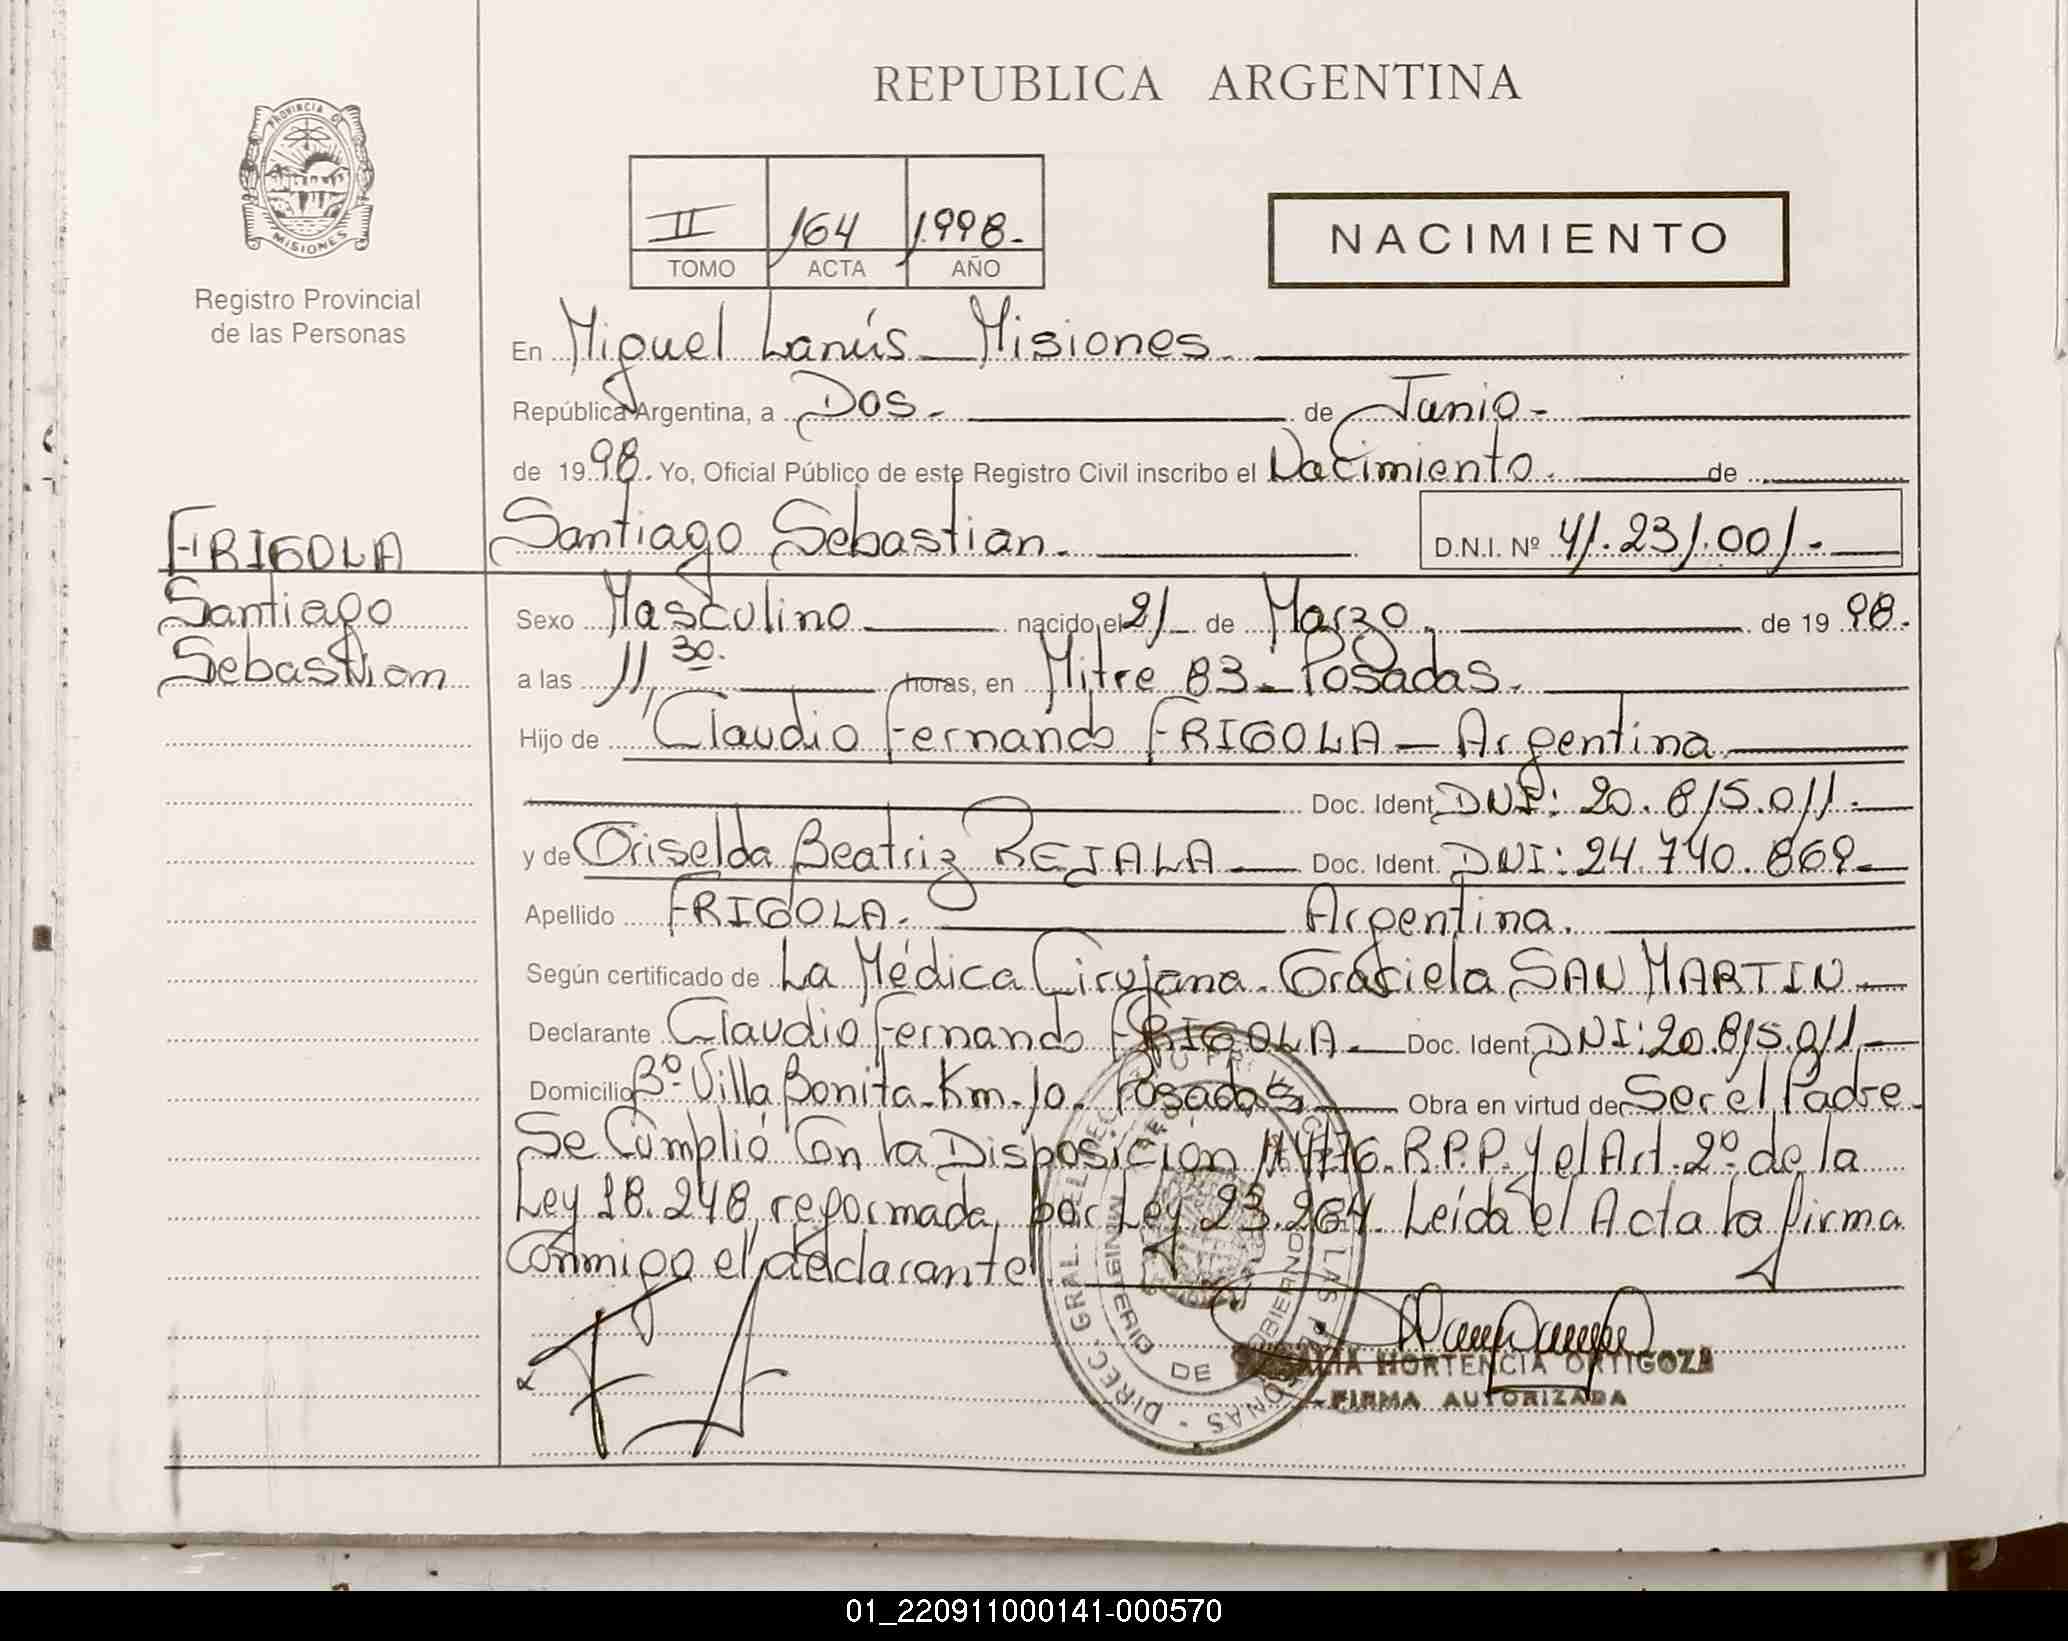 REPUBLICA ARGENTINA
PROVINCIA DE
MISIONES
Registro Provincial
de las Personas
II 164 1.998.-
TOMO ACTA AÑO
NACIMIENTO
En Miguel Lanús - Misiones.
República Argentina, a Dos.- de Junio.-
de 19 98. Yo, Oficial Público de este Registro Civil inscribo el Nacimiento. de
FRIGOLA
Santiago
Sebastian
Santiago Sebastian. D.N.I. Nº 41.231.001.-
Sexo Masculino nacido el 21 de Marzo. de 19 98.
a las 11,30. horas, en Mitre 83- Posadas.
Hijo de Claudio Fernando FRIGOLA - Argentina
Doc. Ident. DNI: 20.815.011.-
y de Griselda Beatriz REJALA Doc. Ident. DNI: 24.740.869-
Apellido FRIGOLA. Argentina.
Según certificado de La Médica Cirujana. Graciela SAN MARTIN
Declarante Claudio Fernando FRIGOLA. Doc. Ident. DNI: 20.815.011.
Domicilio Bº- Villa Bonita-Km-10. Posadas Obra en virtud de Ser el Padre.
Se Cumplió Con la Disposición 76. R.P.P. y el Art. 2º de la
Ley 18.248, reformada, por Ley 23.264. Leída el Acta la firma
Conmigo el declarante.
HORTENCIA ORTIGOZA
FIRMA AUTORIZADA
DIREC. GRAL. DEL
LAS PERSONAS
MINISTERIO DE GOBIERNO
01_220911000141-000570